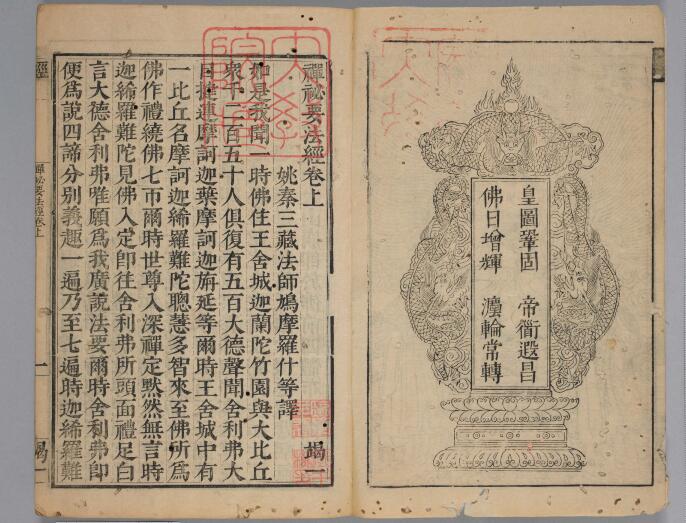 皇圖鞏固　帝衟遐昌
佛日增輝　灋輪常轉
禪祕要法經卷上　竭一
姚秦三藏法師鳩摩羅什等譯
如是我聞一時佛住王舍城迦蘭陀竹園與大比丘
衆千二百五十人俱復有五百大德聲聞舍利弗大
目揵連摩訶迦葉摩訶迦旃延等爾時王舍城中有
一比丘名摩訶迦絺羅難陀聰慧多智來至佛所爲
佛作禮繞佛七帀爾時世尊入深禪定默然無言時
迦絺羅難陀見佛入定卽往舍利弗所頭面禮足白
言大德舍利弗唯願爲我廣說法要爾時舍利弗卽
便爲說四諦分別義趣一遍乃至七遍時迦絺羅難
經　禪祕要法經卷上　一　竭一